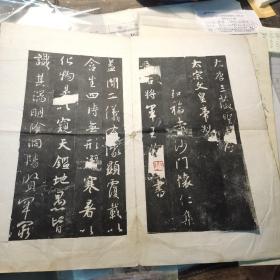 大唐三藏聖教序
太宗文皇帝製
弘福寺沙門懷仁集
右將軍王書
蓋聞二儀有像顯覆載以
含生四時無形潛寒暑以
化物是以窺天鑑地庸愚皆
識其端明陰洞陽賢哲罕窮